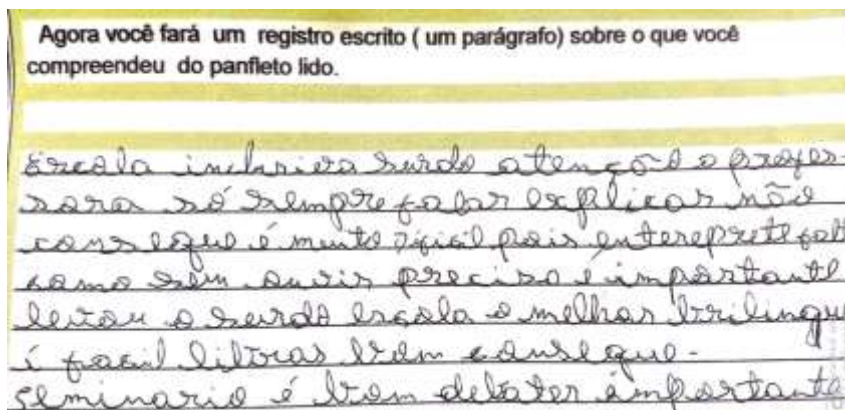 Agora você fará um registro escrito ( um parágrafo) sobre o que você
compreendeu do panfleto lido.
Escola inclusiva surdo atenção o profes-
sora só sempre falar explicar não
consegue é muito dificil pois entereprete falt
como sem ouvir preciso é importante
levou o surdo escola o melhor brilingue
é facil libras bem consegue.
seminario é bom debater importante